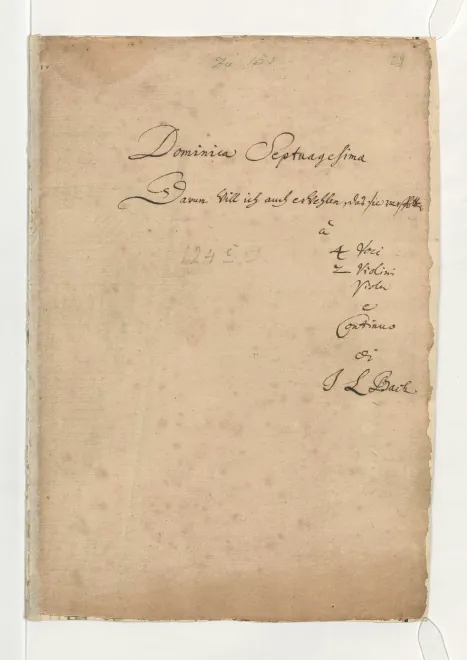 29
Dominica Septuagesima
Darum will ich auch erwehlen, das sie
à
4 Voci
2 Violini
Viola
e
Continuo
di
J L Bach.